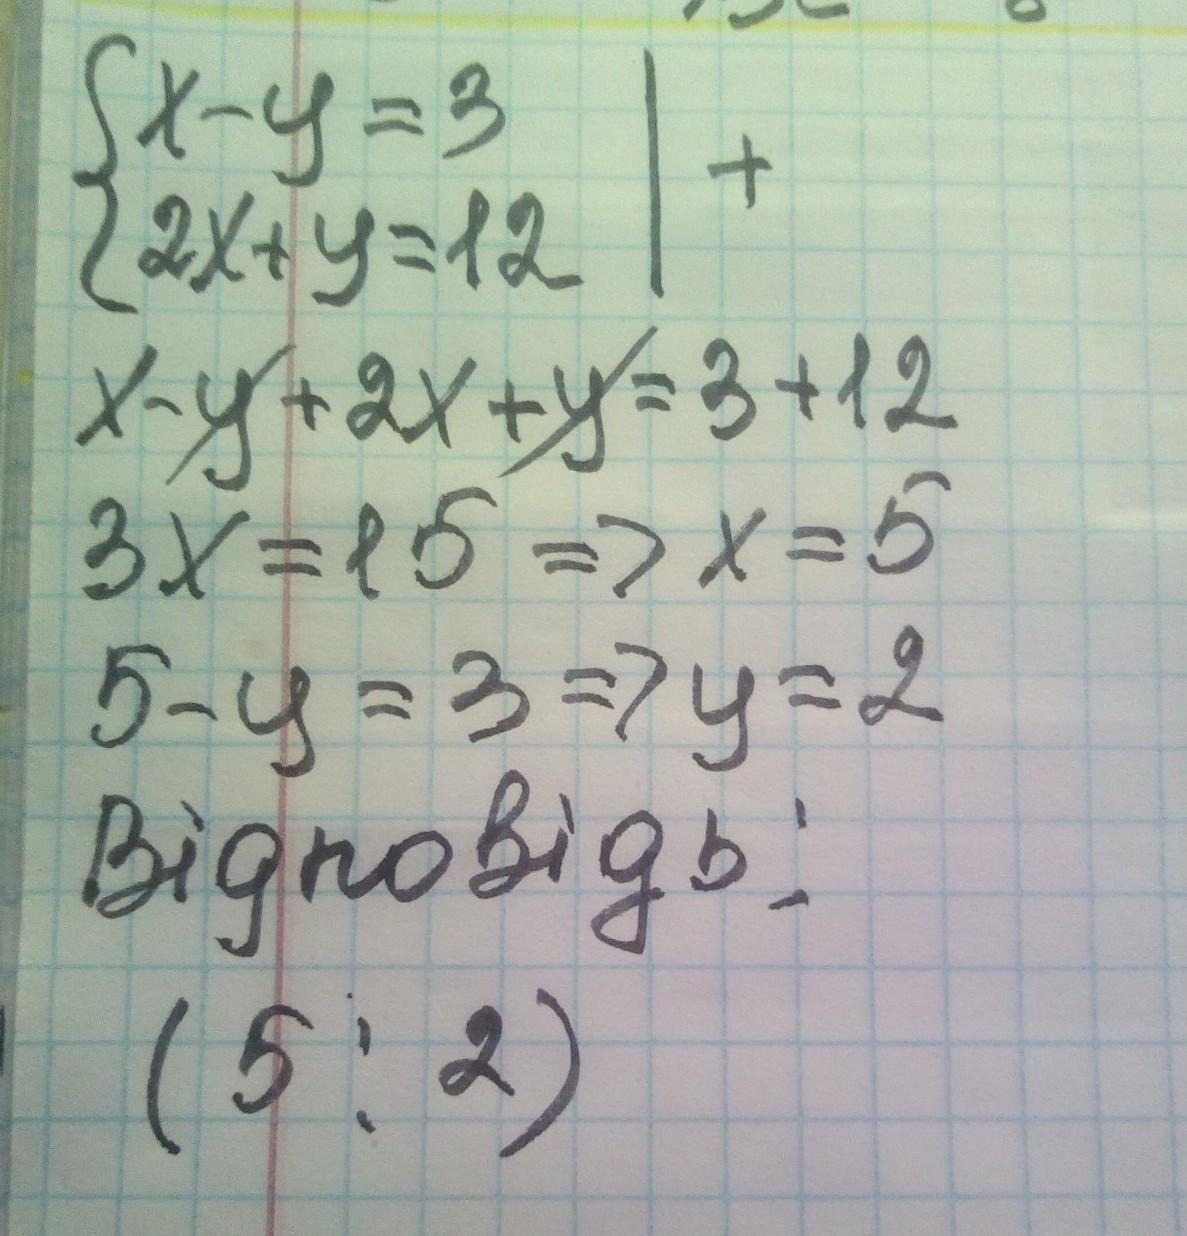 {x-y=3 | +
{2x+y=12 |
x-y+2x+y=3+12
3x=15 => x=5
5-y=3 => y=2
Відповідь:
(5; 2)